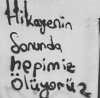 Hikayenin
Sonunda
hepimiz
ölüyoruz